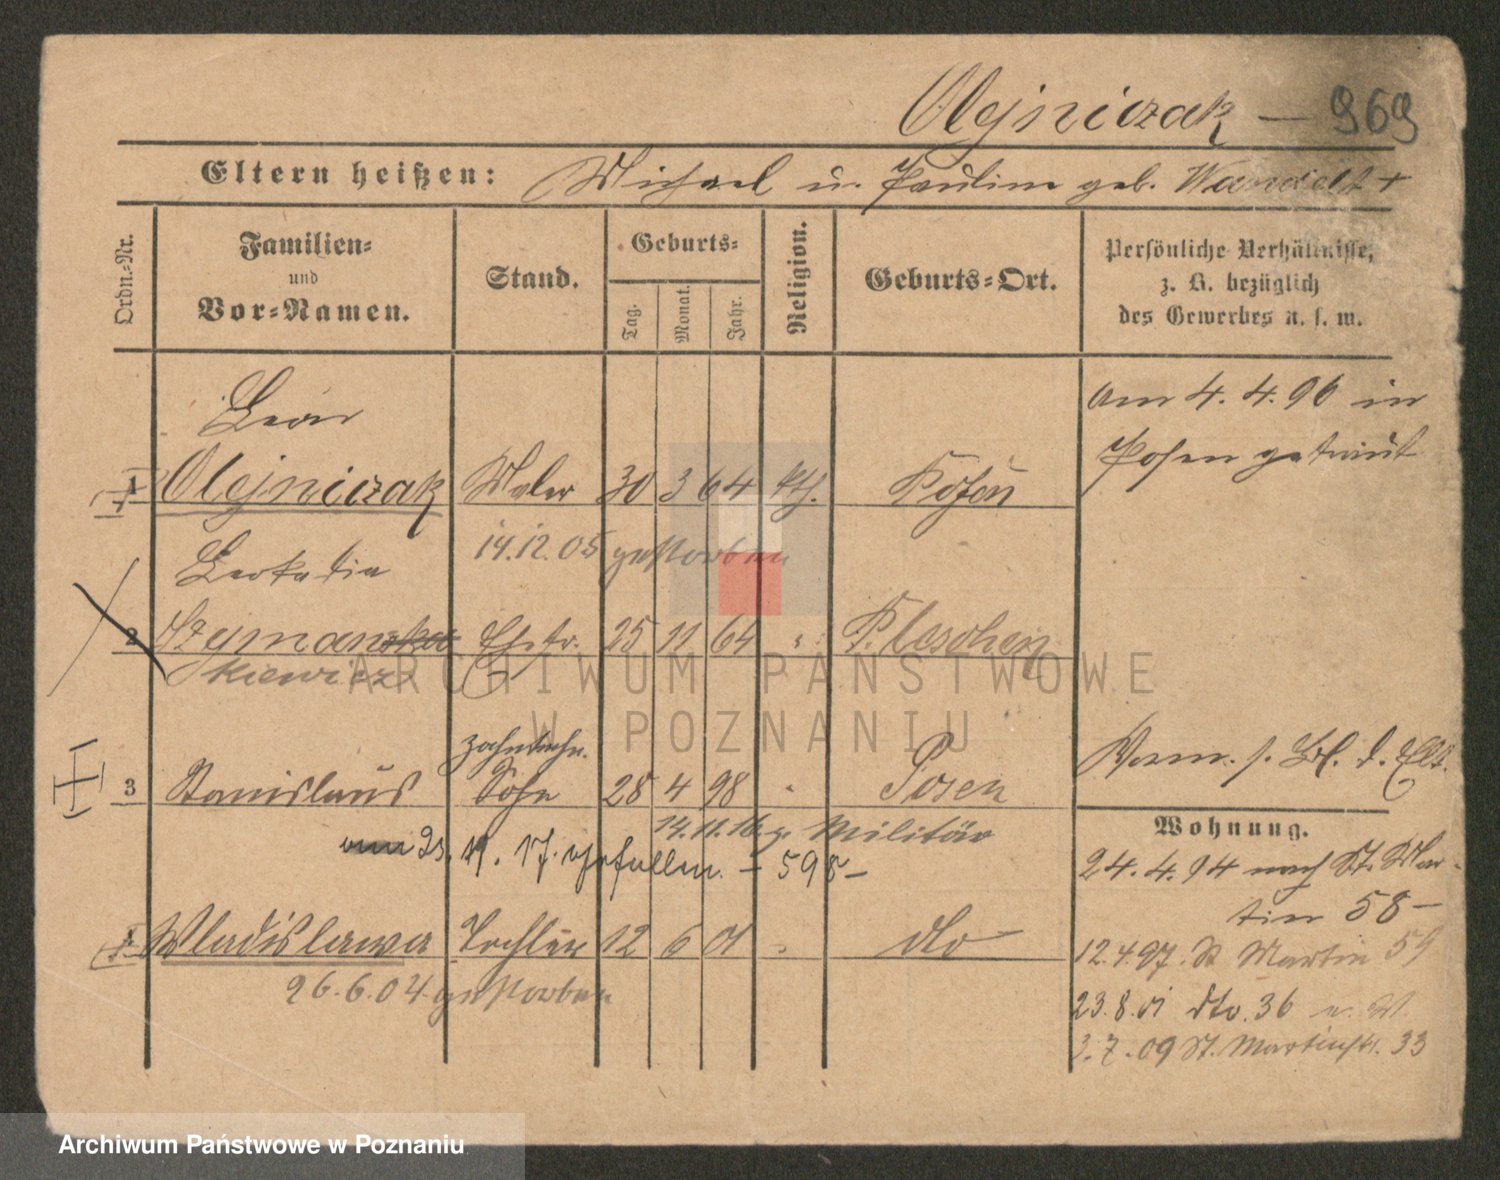 Olejniczak — 969
Eltern heißen: Michael u. Pauline geb. Wandelt +
Ordn.-Nr.
Familien-
und
Vor-Namen.
Stand.
Geburts-
Tag.
Monat.
Jahr.
Religion.
Geburts-Ort.
Persönliche Verhältnisse,
z. B. bezüglich
des Gewerbes u. s. w.
Leon
1 Olejniczak Maler 30 3 64 kth. Posen
am 4. 4. 96 in
Posen getraut
14.12.05 gestorben
Leokadia
2 Szymanska Ehefr. 25 11 64 " Pleschen
kiewicz
zahntechn.
3 Stanislaus Sohn 28 4 98 " Posen
14.11.16 z. Militär
am 23. 11. 17. gefallen. — 595 —
Verm. s. Bl. d. Elt.
4 Wladislawa Tochter 12 6 01 " dto
26.6.04 gestorben
Wohnung.
24. 4. 94 nach St. Mar-
tin 58 —
12.4.97. St Martin 59
23.8.01 dto. 36
3. 7. 09 St. Martinstr. 33
ARCHIWUM PAŃSTWOWE
W POZNANIU
Archiwum Państwowe w Poznaniu